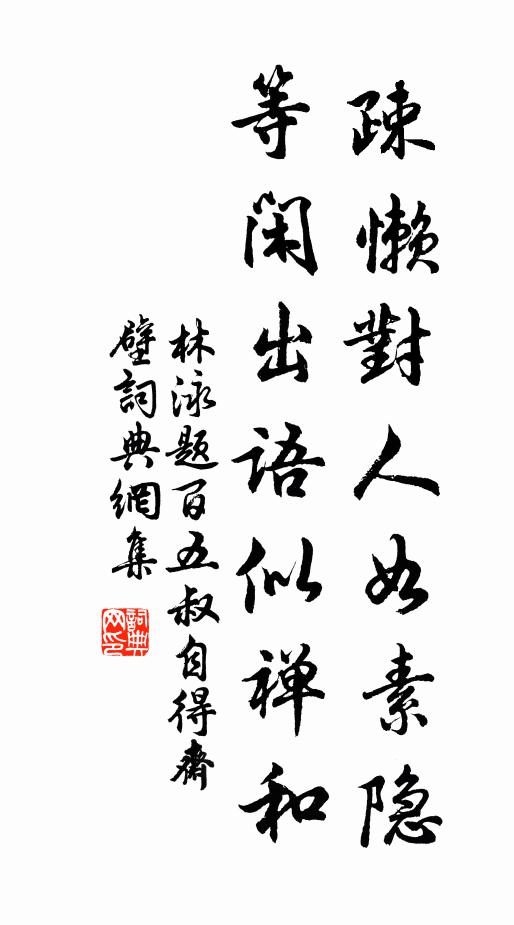 疎懒對人如素隐
等闲出语似禅和
林泳题百五叔自得齋
壁詞典網集
詞典網印